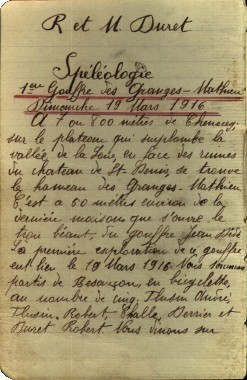 R et M. Duret
Spéléologie
1ère Gouffre des Granges-Mathieu
Dimanche 19 Mars 1916
A 7 ou 800 mètres de Chenecey,
sur le plateau qui surplombe la
vallée de la Loue, en face des ruines
du chateau de St Denis, se trouve
le hameau des Granges-Mathieu
C'est a 50 mètres environ de la
dernière maison que s'ouvre le
trou béant, du gouffre
La première exploration de ce gouffre
eut lieu le 19 Mars 1916. Nous sommes
partis de Besançon, en bicyclette,
au nombre de cinq, André,
Robert, et
Duret Robert. Nous vinons sur